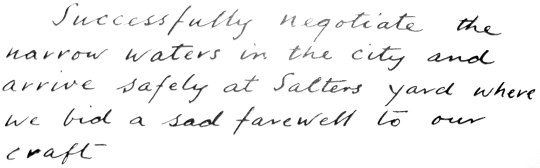 Successfully negotiate the
narrow waters in the city and
arrive safely at Salters yard where
we bid a sad farewell to our
craft